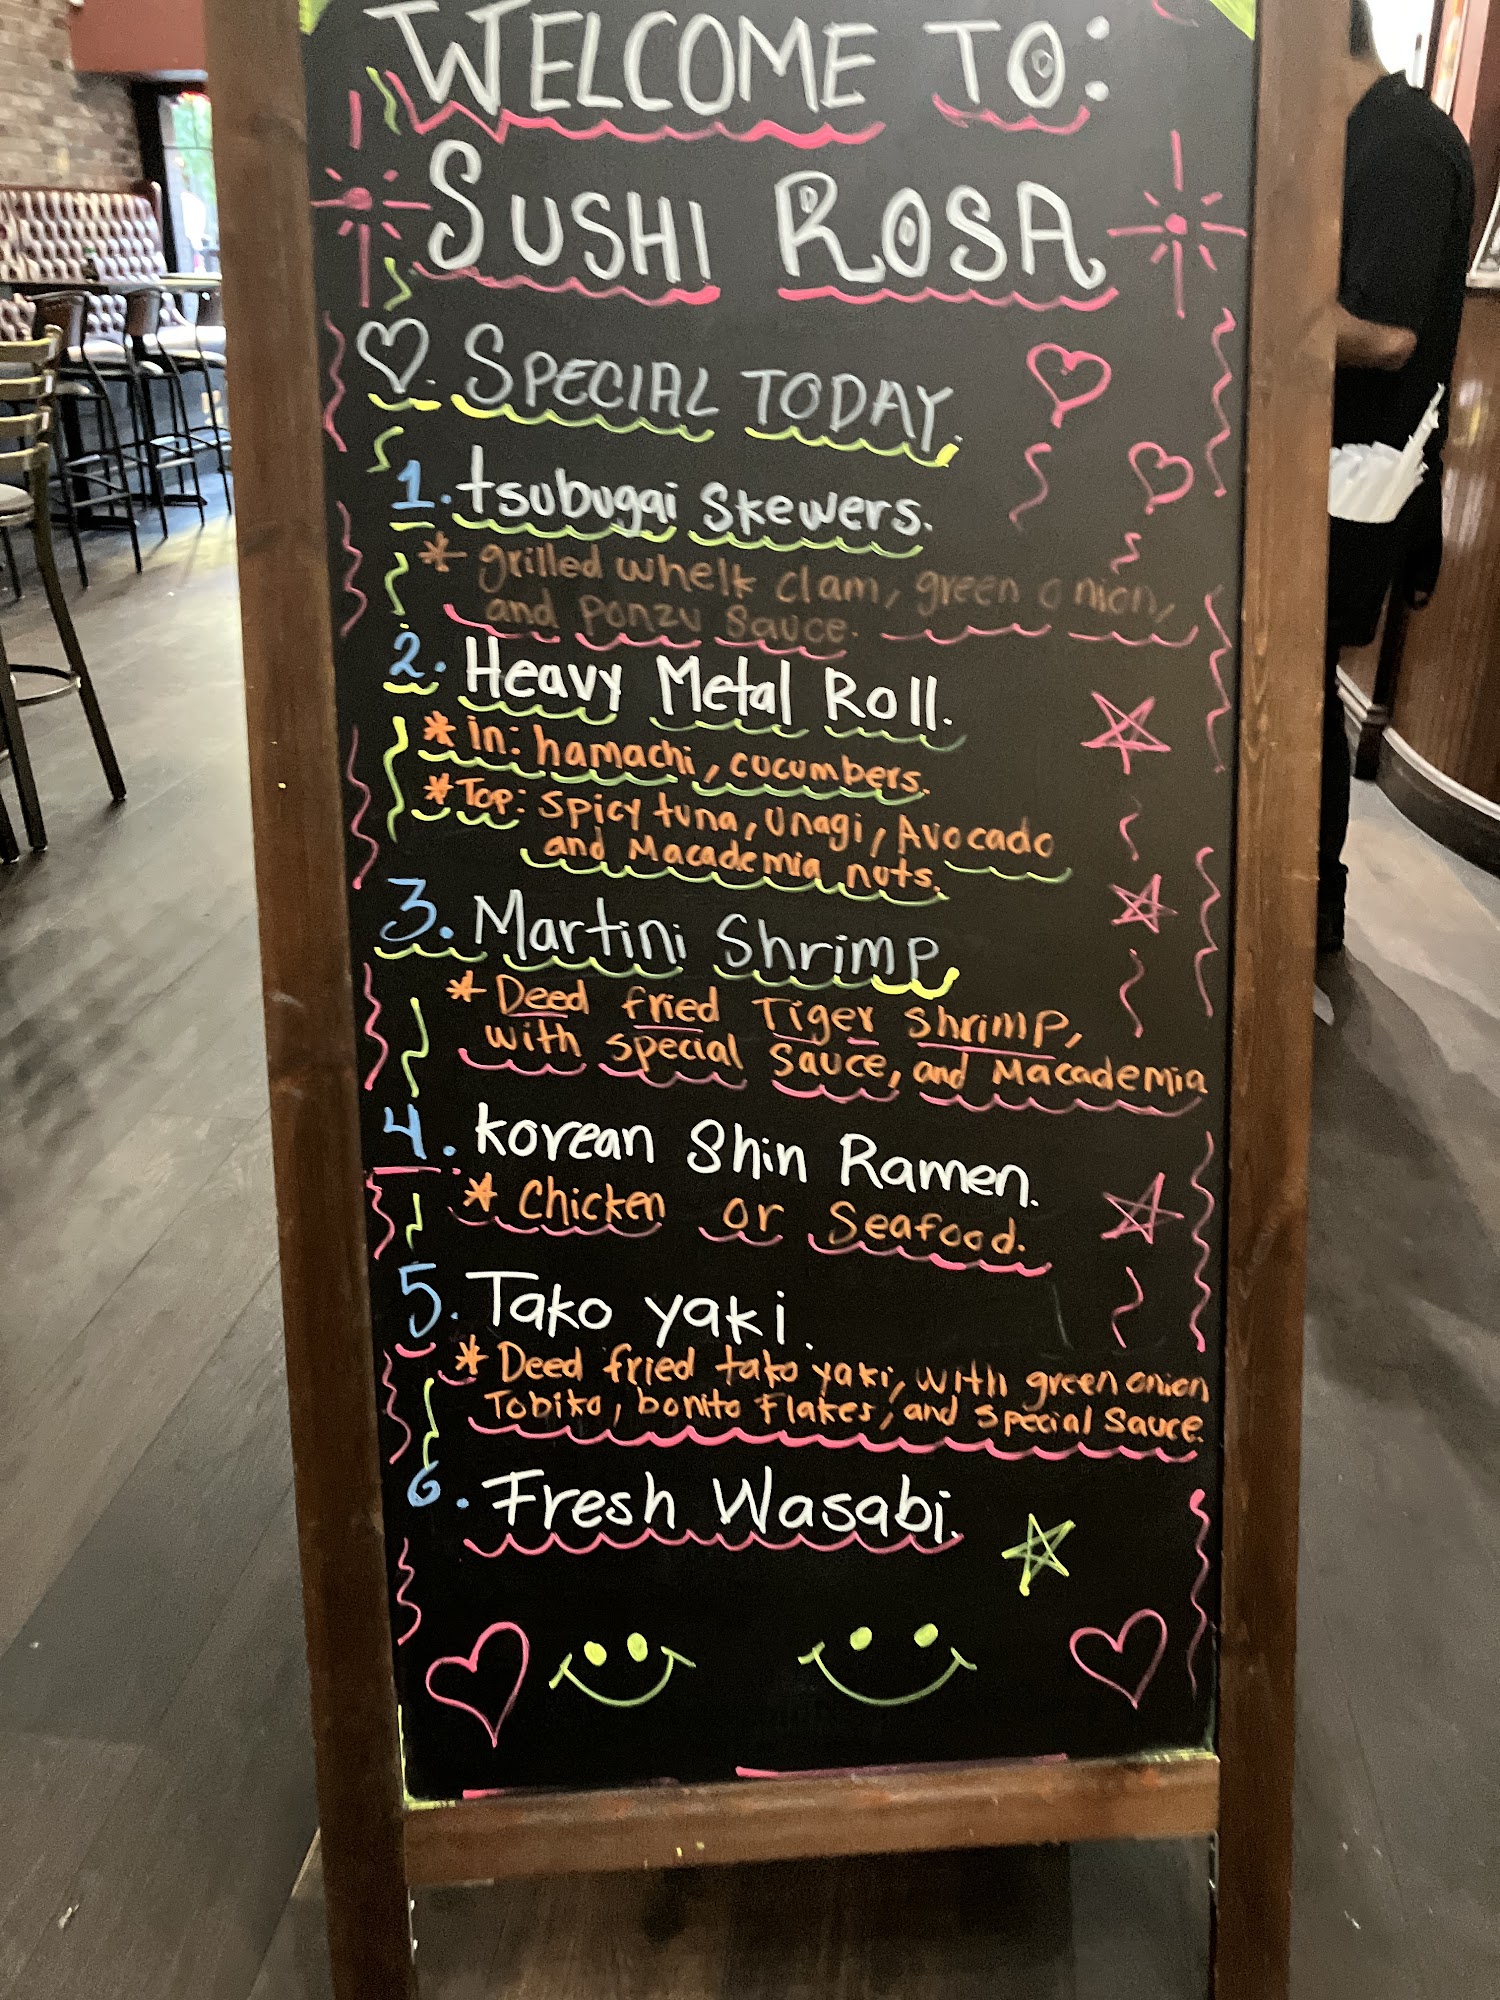 WELCOME TO:
SUSHI ROSA
SPECIAL TODAY.
1. tsubugai Skewers.
* grilled whelk clam, green onion,
and Ponzu Sauce.
2. Heavy Metal Roll.
* in: hamachi, cucumbers.
* Top: Spicy tuna, Unagi, Avocado
and Macademia nuts.
3. Martini Shrimp
* Deed fried Tiger Shrimp,
with Special Sauce, and Macademia
4. Korean Shin Ramen.
* Chicken or Seafood.
5. Tako yaki.
* Deed fried tako yaki, with green onion
Tobiko, bonito Flakes, and special Sauce.
6. Fresh Wasabi.